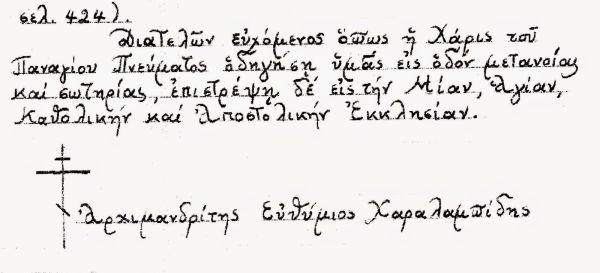 σελ. 424).
Διατελῶν εὐχόμενος ὅπως ἡ Χάρις τοῦ
Παναγίου Πνεύματος ὁδηγήσῃ ὑμᾶς εἰς ὁδόν μετανοίας
καί σωτηρίας, ἐπιστρέψῃ δέ εἰς τήν Μίαν, Ἁγίαν,
Καθολικήν καί Ἀποστολικήν Ἐκκλησίαν.
Ἀρχιμανδρίτης Εὐθύμιος Χαραλαμπίδης